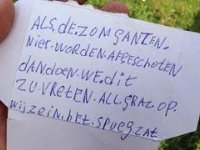 ALS.DE.ZOMGANZEN.
NIET.WORDEN.AFGESCHOTEN
DAN DOEN.WE.dit
ZU.VRETEN.ALL.GRAZ.OP.
WIJ.ZEIN.HET.SPUEGZAT